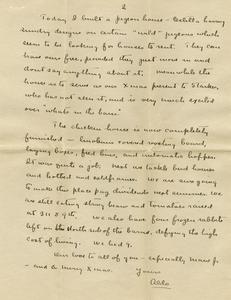 2
Today I built a pigeon house - Estella having
sundry designs on certain "wild" pigeons which
seem to be looking for houses to rent. They can
have ours free, provided they just move in and
dont say anything about it. Meanwhile the
house is to serve as our Xmas present to Starker,
who has not seen it, and is very much excited
over "whats in the barn"
The chicken house is now completely
furnished - linoleum covered roosting board,
laying boxes, feed bins, and automatic hopper.
It was quite a job. Next we tackle bird houses
and hotbed and coldframes. We are sure going
to make this place pay dividends next summer. We
are still eating string beans and tomatoes raised
at 311 S 9th. We also have four frozen rabbits
left on the north side of the barn, defying the high
cost of living. We had 9.
Our love to all of you - especially
- and a Merry Xmas. Yours
Aldo